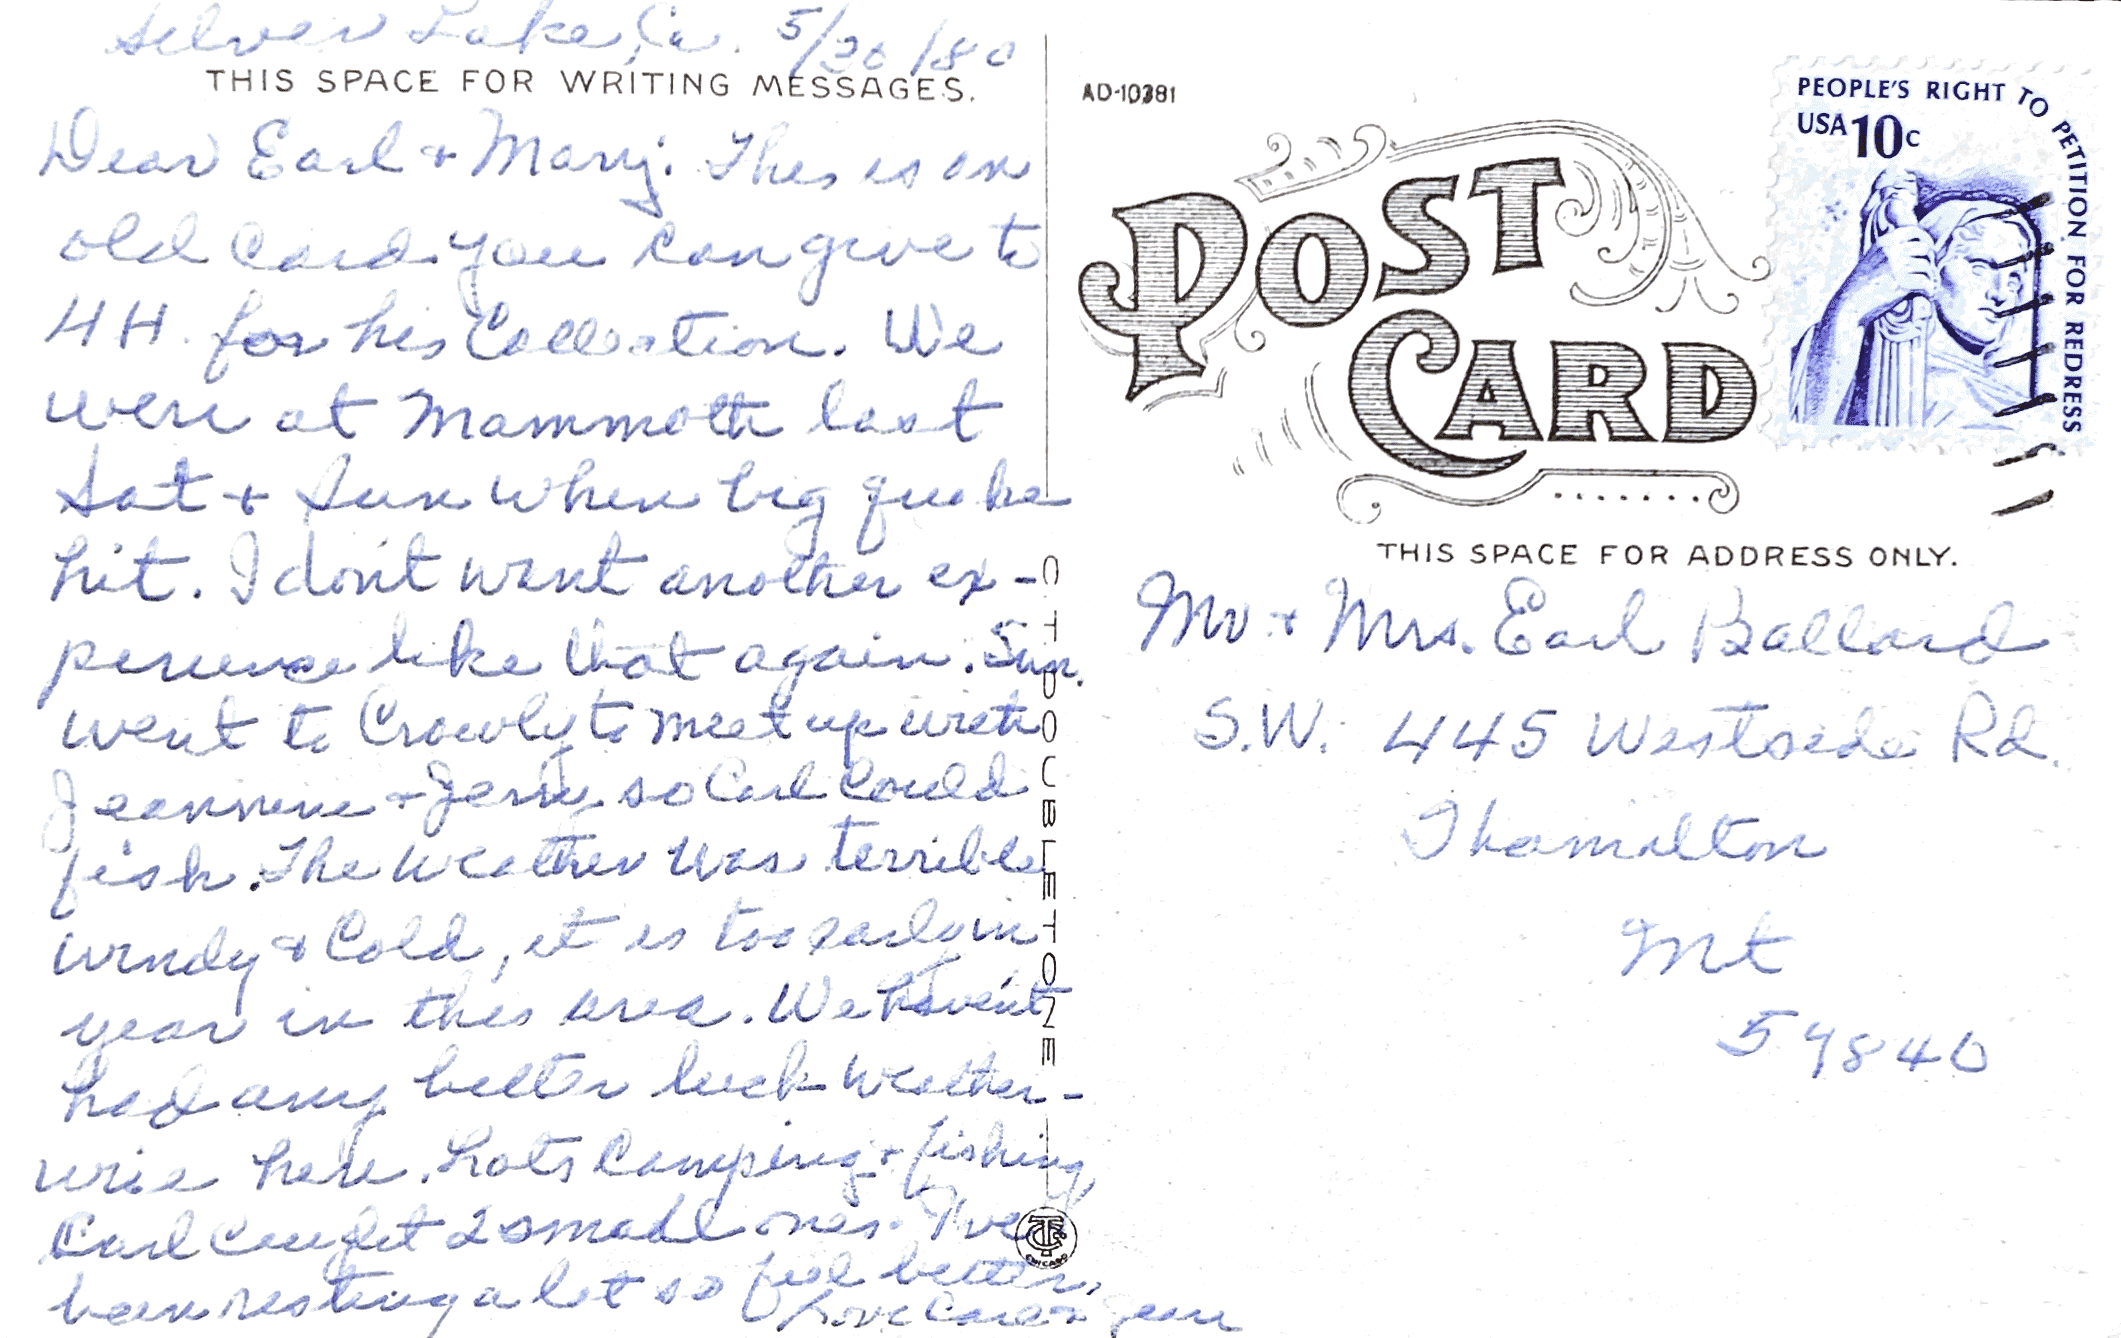 Silver Lake, Ca. 5/30/80
THIS SPACE FOR WRITING MESSAGES.
Dear Earl & Mary: This is an
old Card you can give to
HH. for his Collection. We
were at Mammoth last
Sat & Sun when big quake
hit. I don't want another ex-
perience like that again. Sun.
went to Crowly to meet up with
Jeannine & Jerry so Carl Could
fish. The Weather was terrible
windy & Cold, it is too early in
year in this area. We haven't
had any better luck weather-
wise here. Lots Camping & fishing,
Carl Caught 2 small ones. I've
been resting a lot so feel better.
Love Carl & Jean
C.T. DOUBLETONE
CT
CHICAGO
AD-10381
POST
CARD
PEOPLE'S RIGHT TO PETITION FOR REDRESS
USA 10c
THIS SPACE FOR ADDRESS ONLY.
Mr & Mrs. Earl Ballard
S.W. 445 Westside Rd.
Hamilton
Mt
59840